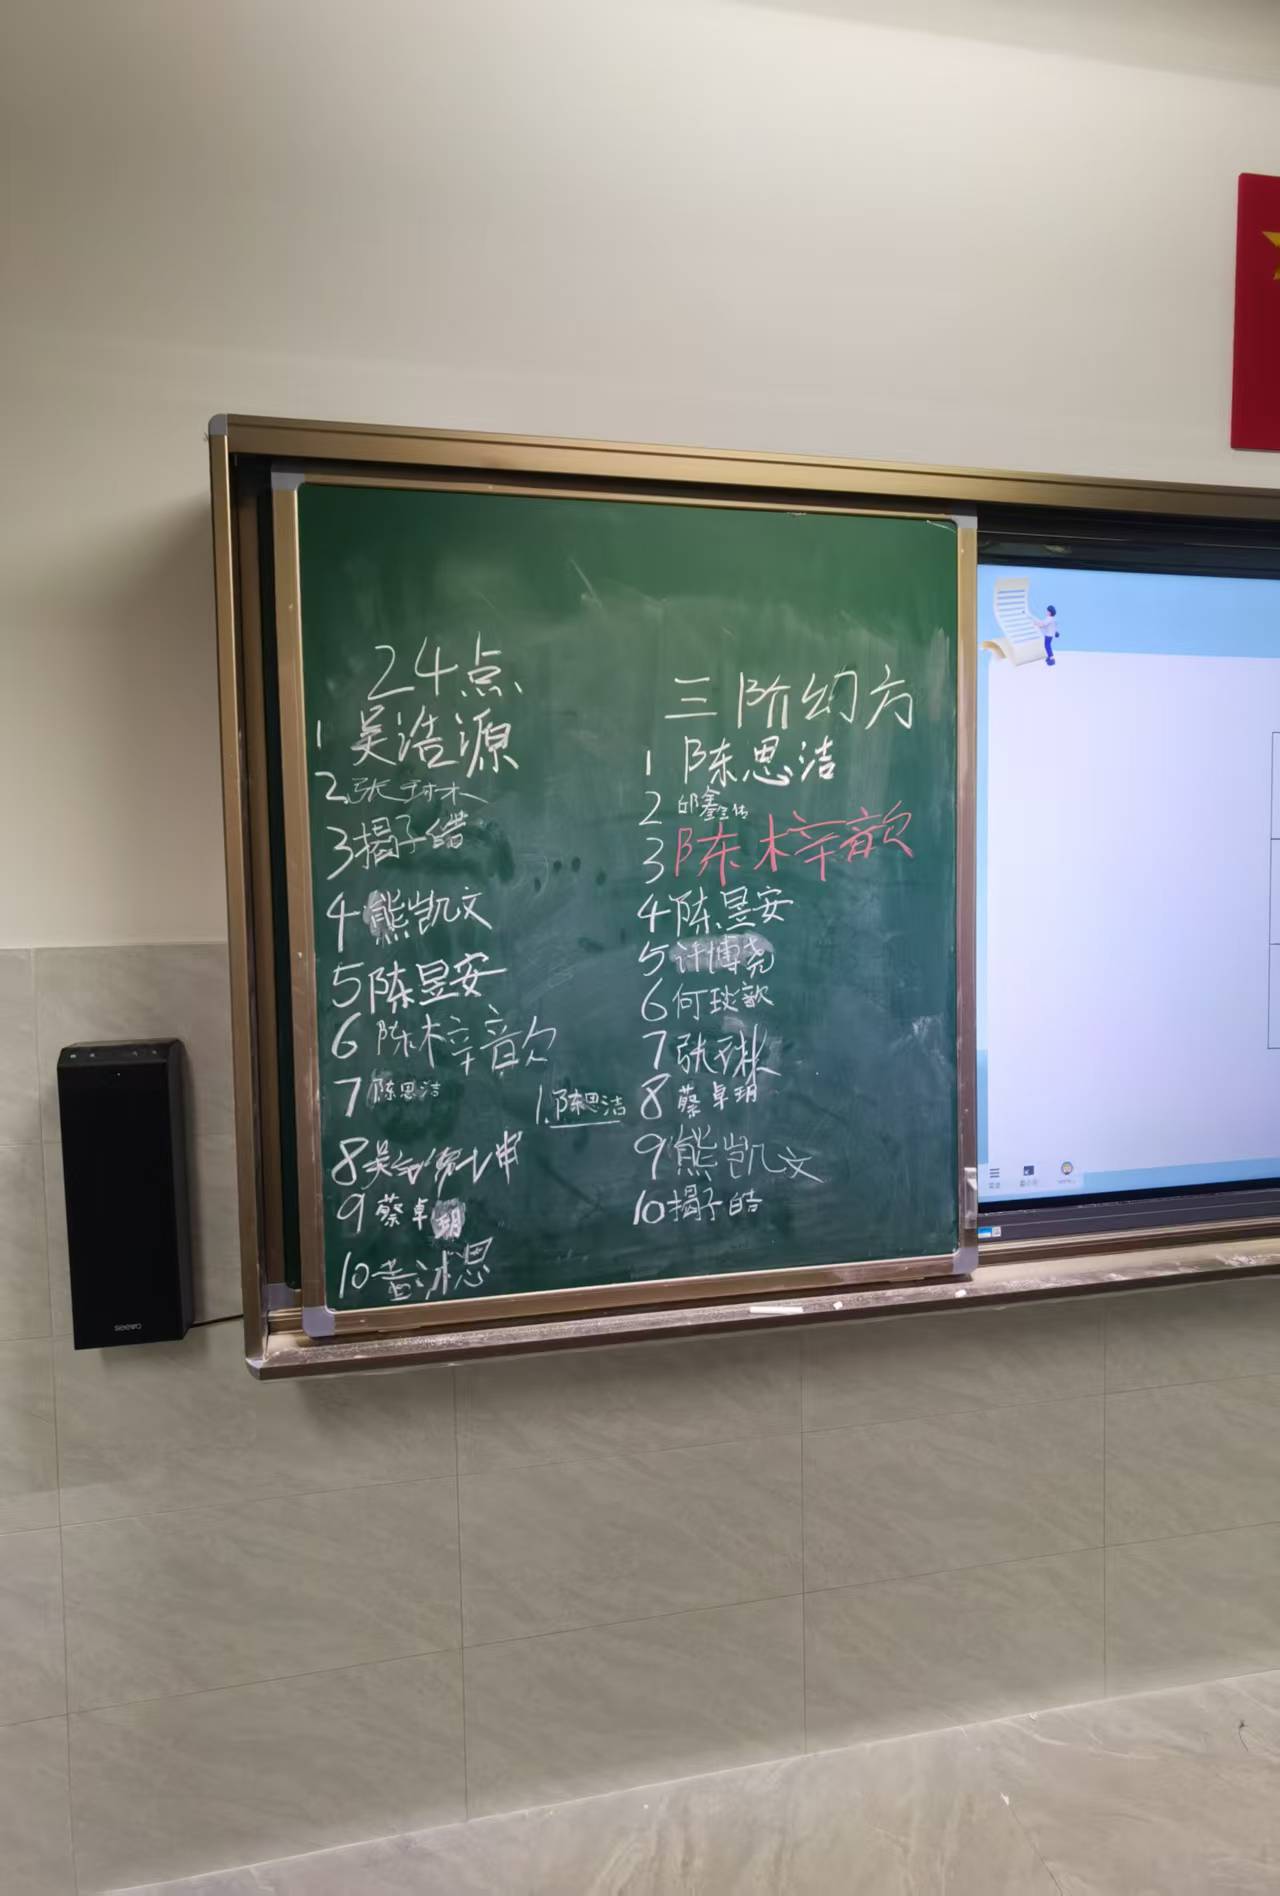 24点
1 吴浩源
2.张琳
3 揭子皓
4 熊凯文
5 陈昱安
6 陈梓歆
7 陈思洁
8 吴
9 蔡卓玥
10 黄冰思
三阶幻方
1 陈思洁
2 邱鑫
3 陈梓歆
4 陈昱安
5 许博尧
6 何琰歆
7 张琳
8 蔡卓玥
9 熊凯文
10 揭子皓
1.陈思洁
seewo